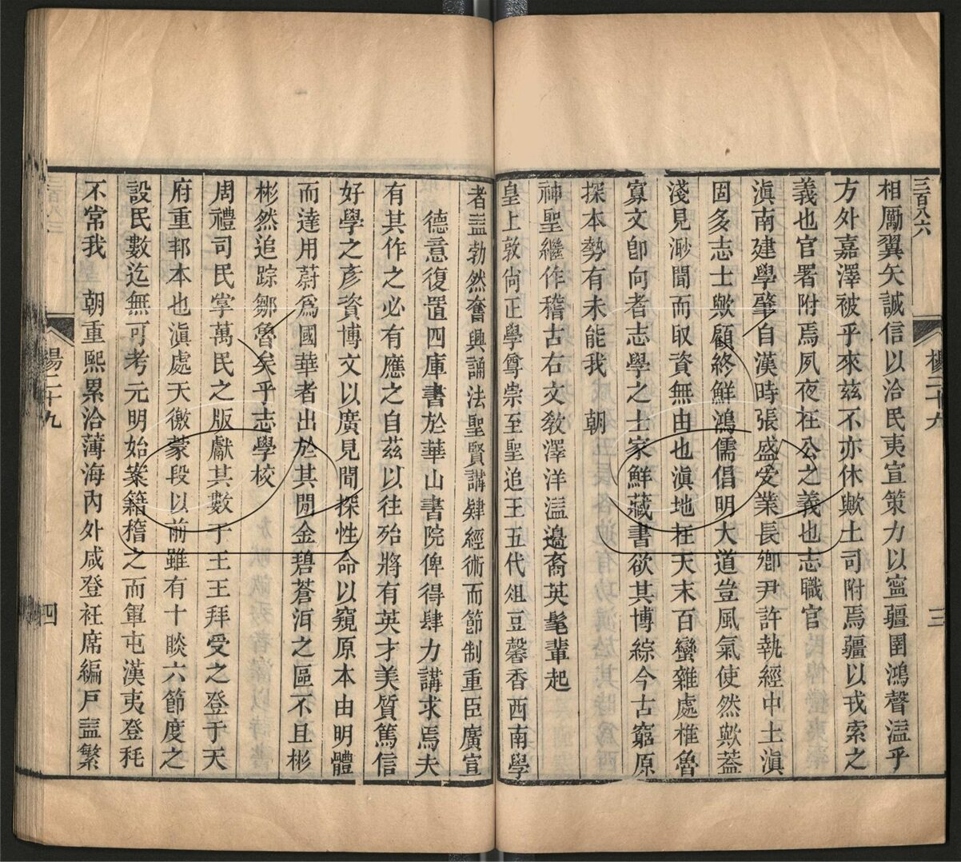 三百八六
相勵翼矢誠信以洽民夷宣策力以寧疆圉鴻聲溢乎
方外嘉澤被乎來兹不亦休歟土司附焉疆以戎索之
義也官署附焉夙夜在公之義也志職官
滇南建學肇自漢時張盛受業長卿尹許執經中土滇
固多志士歟顧終鮮鴻儒倡明大道豈風氣使然歟蓋
淺見渺聞而取資無由也滇地在天末百蠻雜處椎魯
寡文卽向者志學之士家鮮藏書欲其博綜今古窮原
探本勢有未能我　朝
神聖繼作稽古右文敎澤洋溢邉裔英髦輩起
皇上敦尙正學尊崇至聖追王五代俎豆馨香西南學
楊二十九
三
者益勃然奮興誦法聖賢講肄經術而節制重臣廣宣
德意復置四庫書於華山書院俾得肆力講求焉夫
有其作之必有應之自茲以往殆將有英才美質篤信
好學之彥資博文以廣見聞探性命以窺原本由明體
而達用蔚爲國華者出於其間金碧蒼洱之區不且彬
彬然追踪鄒魯矣乎志學校
周禮司民掌萬民之版獻其數于王王拜受之登于天
府重邦本也滇處天徼蒙段以前雖有十賧六節度之
設民數迄無可考元明始案籍稽之而軍屯漢夷登秏
不常我　朝重熙累洽薄海內外咸登衽席編戶益繁
楊二十九
四